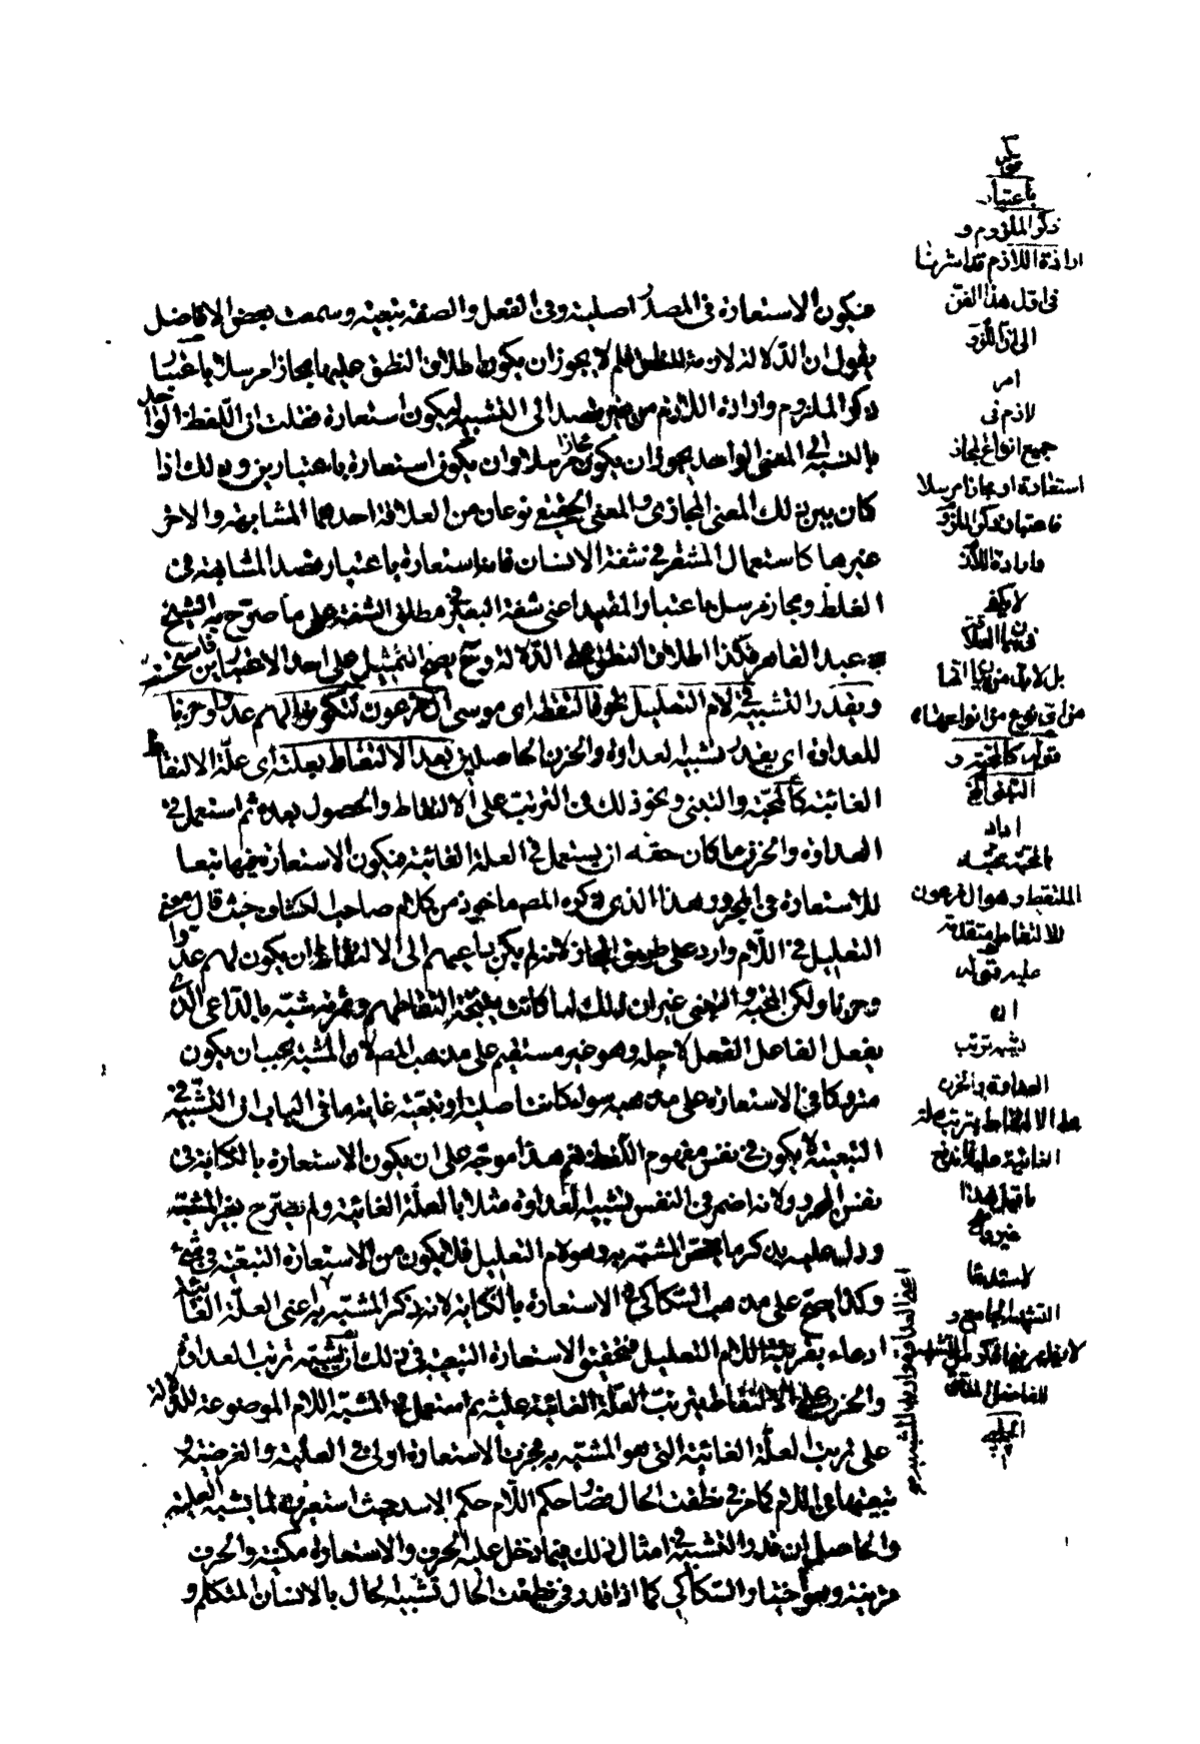 فيكون الاستعارة في المصدر اصلية وفي الفعل والصفة تبعية وسمعت بعض الافاضل
يقول ان الدلالة لازمة للنطق فلم لا يجوز ان يكون اطلاق النطق عليها مجازا مرسلا باعتبار
ذكر الملزوم وارادة اللازم من غير قصد الى التشبيه ليكون استعارة فقلت ان اللفظ الواحد
بالنسبة الى المعنى الواحد يجوز ان يكون مجازا مرسلا وان يكون استعارة باعتبارين وذلك اذا
كان بين ذلك المعنى المجازي والمعنى الحقيقي نوعان من العلاقة احدهما المشابهة والاخر
غيرها كاستعمال المشفر في شفة الانسان فانه استعارة باعتبار قصد المشابهة في
الغلظ ومجاز مرسل باعتبار المقيد اعني شفة البعير في مطلق الشفة على ما صرح به الشيخ
عبد القاهر فكذا اطلاق النطق على الدلالة وح يصح التمثيل على احد الاعتبارين
ويقدر التشبيه في لام التعليل نحو فالتقطه اي موسى آل فرعون ليكون لهم عدوا وحزنا
للعداوة اي يقدر تشبيه العداوة والحزن الحاصلين بعد الالتقاط بعلته اي علة الالتقاط
الغائية كالمحبة والتبني ونحو ذلك في الترتب على الالتقاط والحصول بعده ثم استعمل في
العداوة والحزن ما كان حقه ان يستعمل في العلة الغائية فيكون الاستعارة فيها تبعا
للاستعارة في المجرور وهذا الذي ذكره المص ماخوذ من كلام صاحب الكشاف حيث قال معنى
التعليل في اللام وارد على طريق المجاز لانه لم يكن داعيهم الى الالتقاط ان يكون لهم عدوا
وحزنا ولكن المحبة والتبني غير ان ذلك لما كانت نتيجة التقاطهم وثمرته شبه بالداعي الذي
يفعل الفاعل الفعل لاجله وهو غير مستقيم على مذهب المص لان المشبه يجب ان يكون
متروكا في الاستعارة على مذهبه سواء كانت اصلية او تبعية غاية ما في الباب ان التشبيه في
التبعية لا يكون في نفس مفهوم اللفظ نعم هذا موجه على ان يكون الاستعارة بالكناية في
نفس المجرور لانه اضمر في النفس تشبيه العداوة مثلا بالعلة الغائية ولم يصرح بغير المشبه
ودل عليه بذكر ما يخص المشبه به وهو لام التعليل فلا يكون من الاستعارة التبعية في شيء
وكذا يصح على مذهب السكاكي في الاستعارة بالكناية لانه ذكر المشبه به اعني العلة الغائية
ادعاء بقرينة اللام التعليل فتحقيق الاستعارة التبعية في ذلك انه شبه ترتب العداوة
والحزن على الالتقاط بترتب العلة الغائية عليه ثم استعمل في المشبه اللام الموضوعة للدلالة
على ترتب العلة الغائية التي هو المشبه به فجرت الاستعارة اولا في العلية والغرضية و
تبعيتها في اللام كما مر في نطقت الحال فصار حكم اللام حكم الاسد حيث استعيرت لما يشبه العلية
والحاصل ان قدر التشبيه في امثال ذلك فيما دخل عليه الحرف والاستعارة مكنية والحرف
قرينة وهو اختيار السكاكي كما اذا قدر في نطقت الحال تشبيه الحال بالانسان المتكلم و
باعتبار
ذكر الملزوم و
ارادة اللازم قد اشرنا
في اول هذا الفن
الى ان اللزوم
امر
لازم في
جميع انواع المجاز
استعارة او مجازا مرسلا
فاعتبار ذكر الملزوم
وارادة اللازم
لا يكفي
في بيان العلاقة
من اي نوع من انواعها
قوله كالمحبة و
التبني الخ
اراد
بالمحبة محبة
الملتقط وهو آل فرعون
للالتقاط متقدمة
عليه قوله
انه
شبه ترتب
العداوة والحزن
على الالتقاط بترتب علته
الغائية عليه